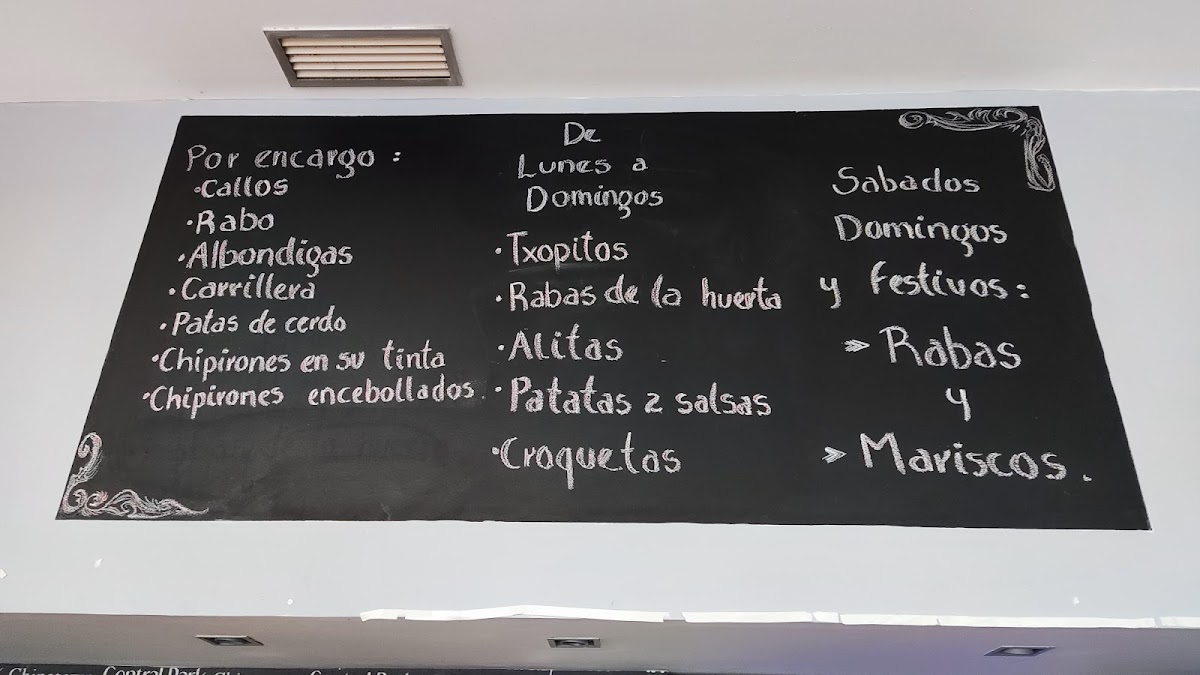 Por encargo :
·Callos
·Rabo
·Albondigas
·Carrillera
·Patas de cerdo
·Chipirones en su tinta
·Chipirones encebollados.
De
Lunes a
Domingos
·Txopitos
·Rabas de la huerta
·Alitas
·Patatas 2 salsas
·Croquetas
Sabados
Domingos
y Festivos:
» Rabas
y
» Mariscos.
Central Park